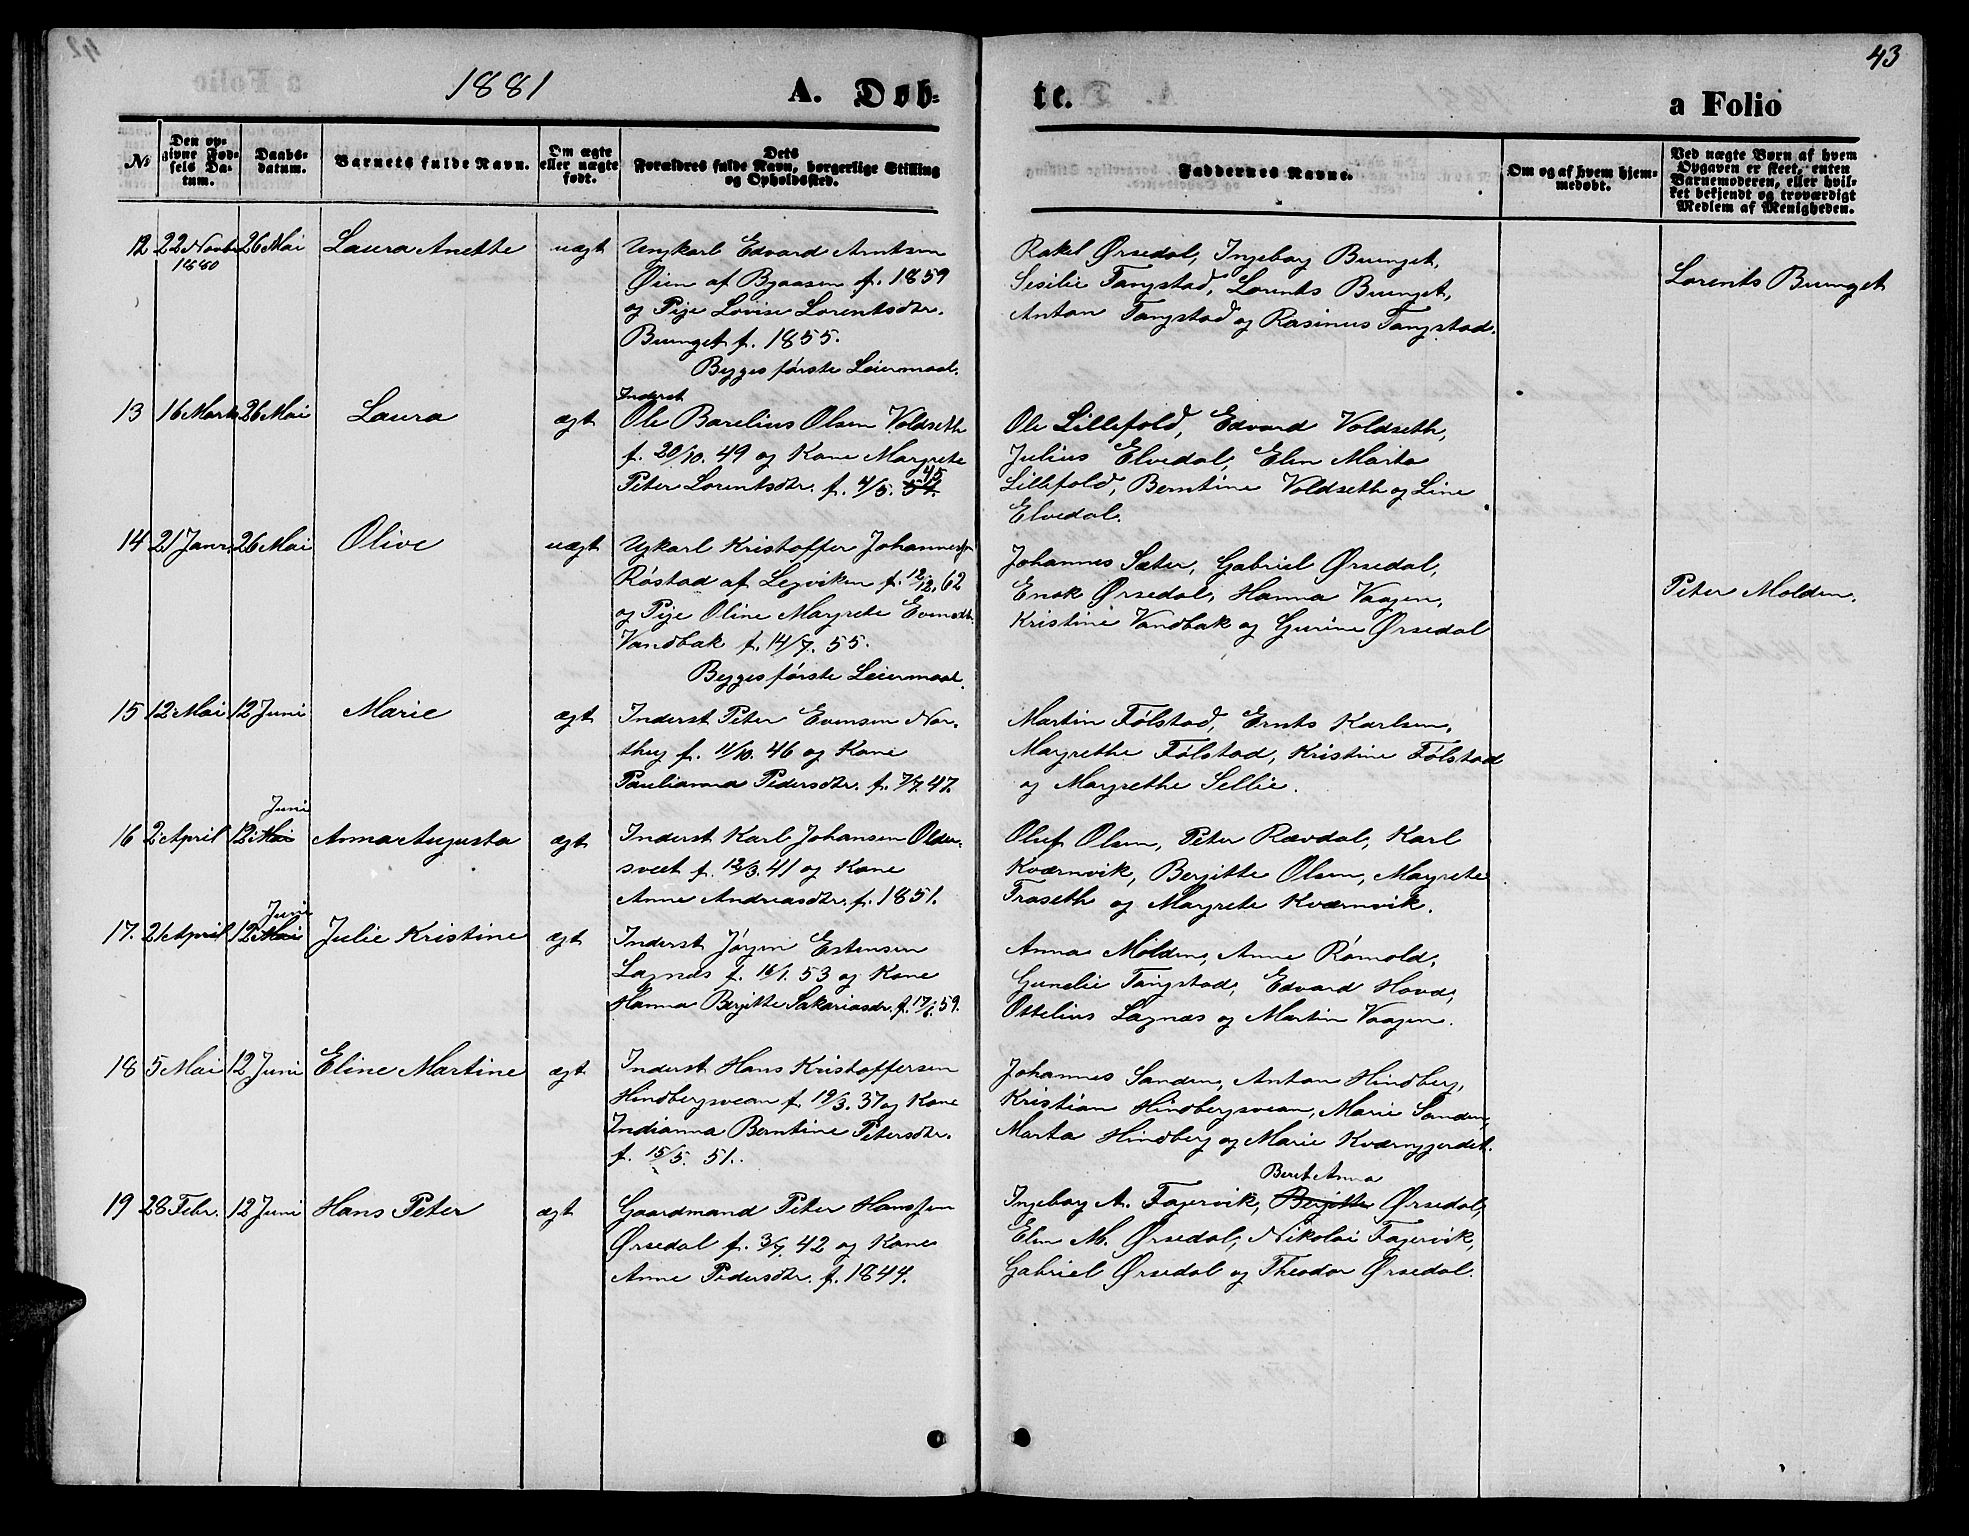 43
1881 A. Døb- te. a Folio
No
Den op-
givne Fød-
sels Da-
tum.
Daabs-
datum.
Barnets fulde Navn.
Om ægte
eller uægte
født.
Dets
Forældres fulde Navn, borgerlige Stilling
og Opholdssted.
Faddernes Navne.
Om og af hvem hjem-
medøbt.
Ved uægte Børn af hvem
Opgaven er skeet, enten
Barnemoderen, eller hvil-
ket bekjendt og troværdigt
Medlem af Menigheden.
12 22 Novbr 1880 26 Mai Laura Anette uægt
Ungkarl Edvard Arntsen
Øien af Bjaasen f. 1859
og Pige Lovise Lorentsdtr.
Brunget f. 1855.
Begges første Leiermaal.
Rakel Ørsedal, Ingeborg Brunget,
Sesilie Tangstad, Lorents Brunget,
Anton Tangstad og Rasinus Tangstad.
Lorents Brunget
13 16 Marts 26 Mai Laura ægt
Inderst
Ole Barelius Olsen Voldseth
f. 20/10. 49 og Kone Margrete
Peter Lorentsdtr. f. 4/5. 45
Ole Lillefold, Edvard Voldseth,
Julius Elvedal, Elen Marta
Lillefold, Berntine Voldseth og Line
Elvedal.
14 21 Janr. 26 Mai Olive uægt
Ugkarl Kristoffer Johannes
Røstad af Legviken f. 12/12. 62
og Pige Oline Margrete Evensdtr.
Vandbak f. 14/7. 55.
Begges første Leiermaal.
Johannes Sæter, Gabriel Ørsedal,
Enok Ørsedal, Hanna Vaagen,
Kristine Vandbak og Gurine Ørsedal
Peter Molden.
15 12 Mai 12 Juni Marie ægt
Inderst Peter Evensen Nor-
thug f. 11/10. 46 og Kone
Paulianna Pedersdtr. f. 7/7. 47.
Martin Følstad, Ernts Karlsen,
Margrethe Følstad, Kristine Følstad
og Margrethe Sellie.
16 2 April 12 Mai Juni Anna Augusta ægt
Inderst Karl Johansen Older-
sveet f. 12/3. 41 og Kone
Anne Andreasdtr. f. 1851.
Oluf Olsen, Peter Rævdal, Karl
Kværnvik, Bergitte Olsen, Margrete
Traseth og Margrete Kværnvik.
17. 21 April 12 Mai Juni Julie Kristine ægt
Inderst Jørgen Estensen
Lagnæs f. 16/1. 53 og Kone
Hanna Bergitte Sakariasdr. f. 17/6. 59.
Anna Molden, Anne Rømold,
Gunelie Tangstad, Edvard Hovd,
Ottelius Lagnæs og Martin Vaagen.
18 5 Mai 12 Juni Eline Martine ægt
Inderst Hans Kristoffersen
Hindbergsvean f. 19/3. 37 og Kone
Indianna Berntine Petersdtr.
f. 15/5. 51.
Johannes Sanden, Anton Hindberg,
Kristian Hindbergsvean, Marie Sanden,
Marta Hindberg og Marie Kværngjerdet.
19 28 Febr. 12 Juni Hans Peter ægt
Gaardmand Peter Hanssen
Ørsedal f. 3/7. 42 og Kone
Anne Pedersdtr. f. 1844.
Berit Anna
Ingeborg A. Fagervik, Bergitte Ørsedal,
Elen M. Ørsedal, Nikolai Fagervik,
Gabriel Ørsedal og Theodor Ørsedal.